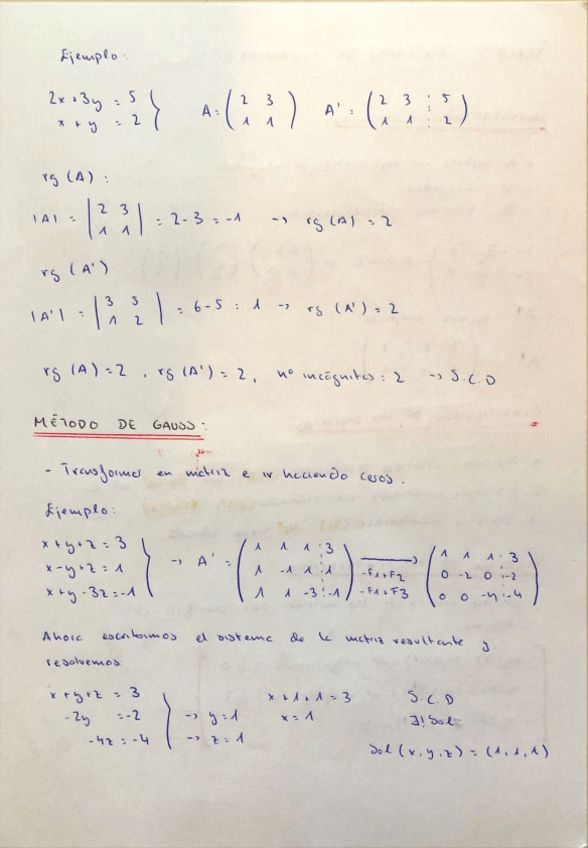 Ejemplo:
2x+3y = 5
x+y = 2
A: ( 2 3 A' = ( 2 3 : 5
1 1 ) 1 1 : 2 )
rg (A) :
|A| = | 2 3
1 1 | = 2-3 = -1 → rg (A) = 2
rg (A')
|A'| = | 3 5
1 2 | = 6-5 : 1 → rg (A') = 2
rg (A) = 2 , rg (A') = 2, nº incógnitas: 2 → S.C.D
MÉTODO DE GAUSS:
- Transformar en matriz e ir haciendo ceros.
Ejemplo:
x+y+z = 3
x-y+z = 1
x+y-3z=-1
→ A' = ( 1 1 1 : 3
1 -1 1 : 1
1 1 -3 : -1 )
-F1+F2
-F1+F3
( 1 1 1 : 3
0 -2 0 : -2
0 0 -4 : -4 )
Ahora escribimos el sistema de la matriz resultante y
resolvemos:
x+y+z = 3 x+1+1=3 S.C.D
-2y =-2 → y=1 x=1 ∃! Sol:
-4z = -4 → z=1
Sol (x,y,z) = (1,1,1)